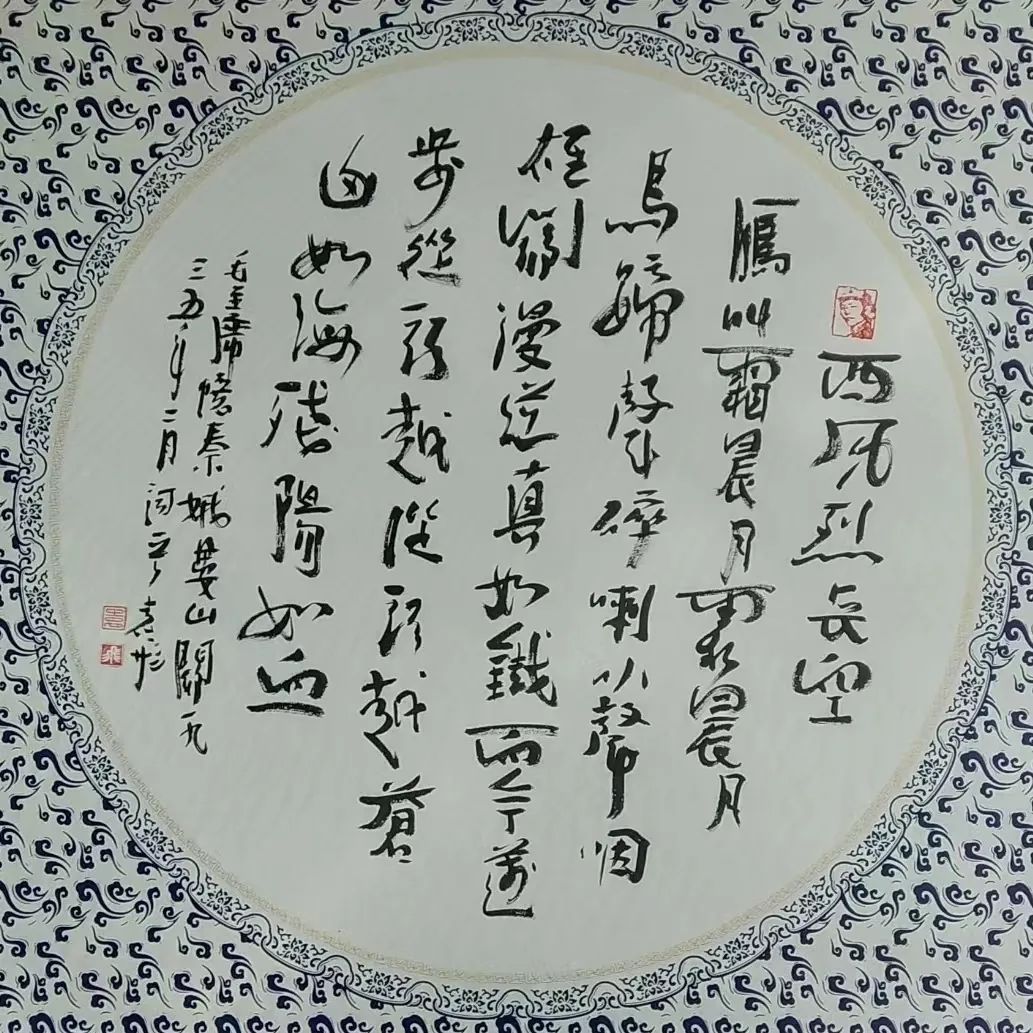 西风烈长空
鴈叫霜晨月霜晨月
馬蹄聲碎喇叭聲咽
雄關漫道真如鐵而今邁
步從頭越從頭越蒼
山如海殘陽如血
毛主席憶秦娥婁山關一九
三五年二月词